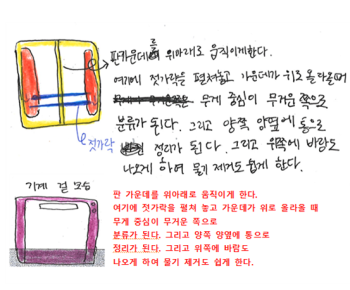 판 가운데를 위아래로 움직이게 한다.
여기에 젓가락을 펼쳐놓고 가운데가 위로 올라올때
무게 중심이 무거운 쪽으로
분류가 된다. 그리고 양쪽 양옆에 통으로
젓가락
정리가 된다. 그리고 위쪽에 바람도
나오게 하여 물기 제거도 쉽게 한다.
기계 겉 모습
판 가운데를 위아래로 움직이게 한다.
여기에 젓가락을 펼쳐 놓고 가운데가 위로 올라올 때
무게 중심이 무거운 쪽으로
분류가 된다. 그리고 양쪽 양옆에 통으로
정리가 된다. 그리고 위쪽에 바람도
나오게 하여 물기 제거도 쉽게 한다.